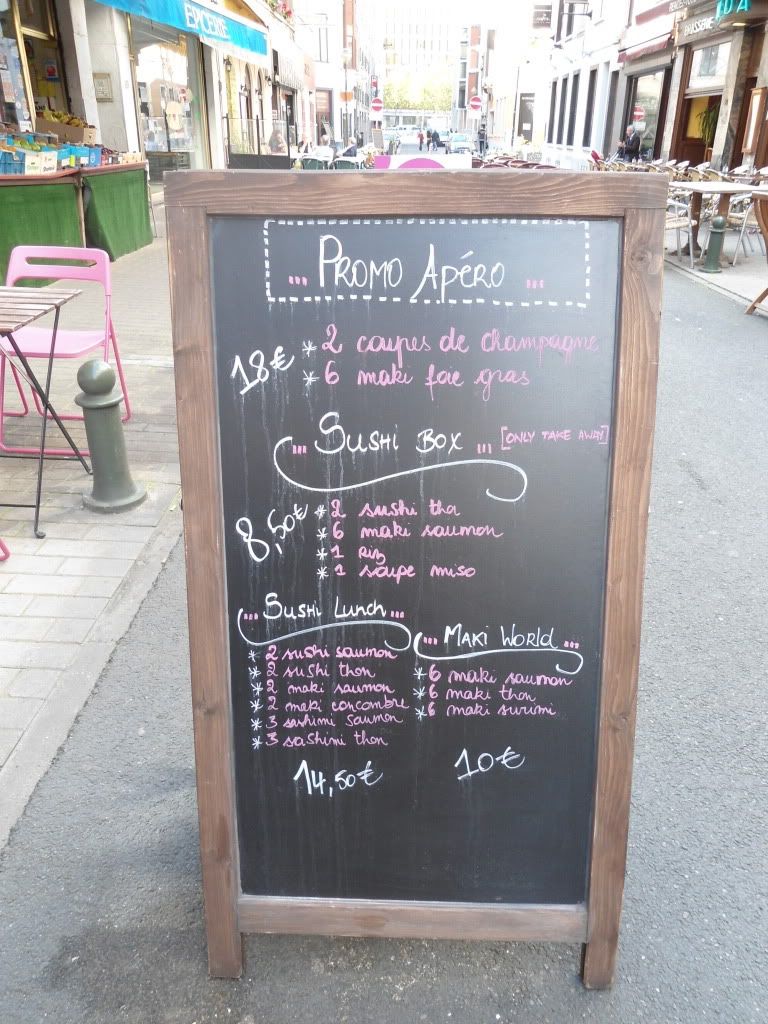 EPICERIE
BRASSERIE
... PROMO APÉRO ...
18€
* 2 coupes de champagne
* 6 maki foie gras
... SUSHI BOX ... [ONLY TAKE AWAY]
8,50€
* 2 sushi tho
* 6 maki saumon
* 1 Riz
* 1 soupe miso
... SUSHI LUNCH ...
* 2 sushi saumon
* 2 sushi thon
* 2 maki saumon
* 2 maki concombre
* 3 sashimi saumon
* 3 sashimi thon
14,50€
... MAKI WORLD ...
* 6 maki saumon
* 6 maki thon
* 6 maki surimi
10€